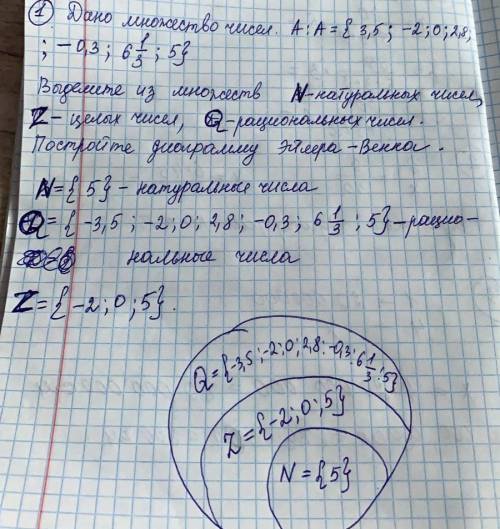 ① Дано множество чисел. A: A = { 3,5 ; -2 ; 0 ; 2,8 ;
; -0,3 ; 6 1/3 ; 5}
Выделите из множеств N-натуральных чисел,
Z - целых чисел, Q-рациональных чисел.
Постройте диаграмму Эйлера-Венна.
N = { 5} - натуральные числа
Q = { -3,5 ; -2 ; 0 ; 2,8 ; -0,3 ; 6 1/3 ; 5} - рацио-
нальные числа
Z = { -2 ; 0 ; 5} .
Q = {-3,5 ; -2 ; 0 ; 2,8 ; -0,3 ; 6 1/3 ; 5}
Z = {-2 ; 0 ; 5}
N = {5}